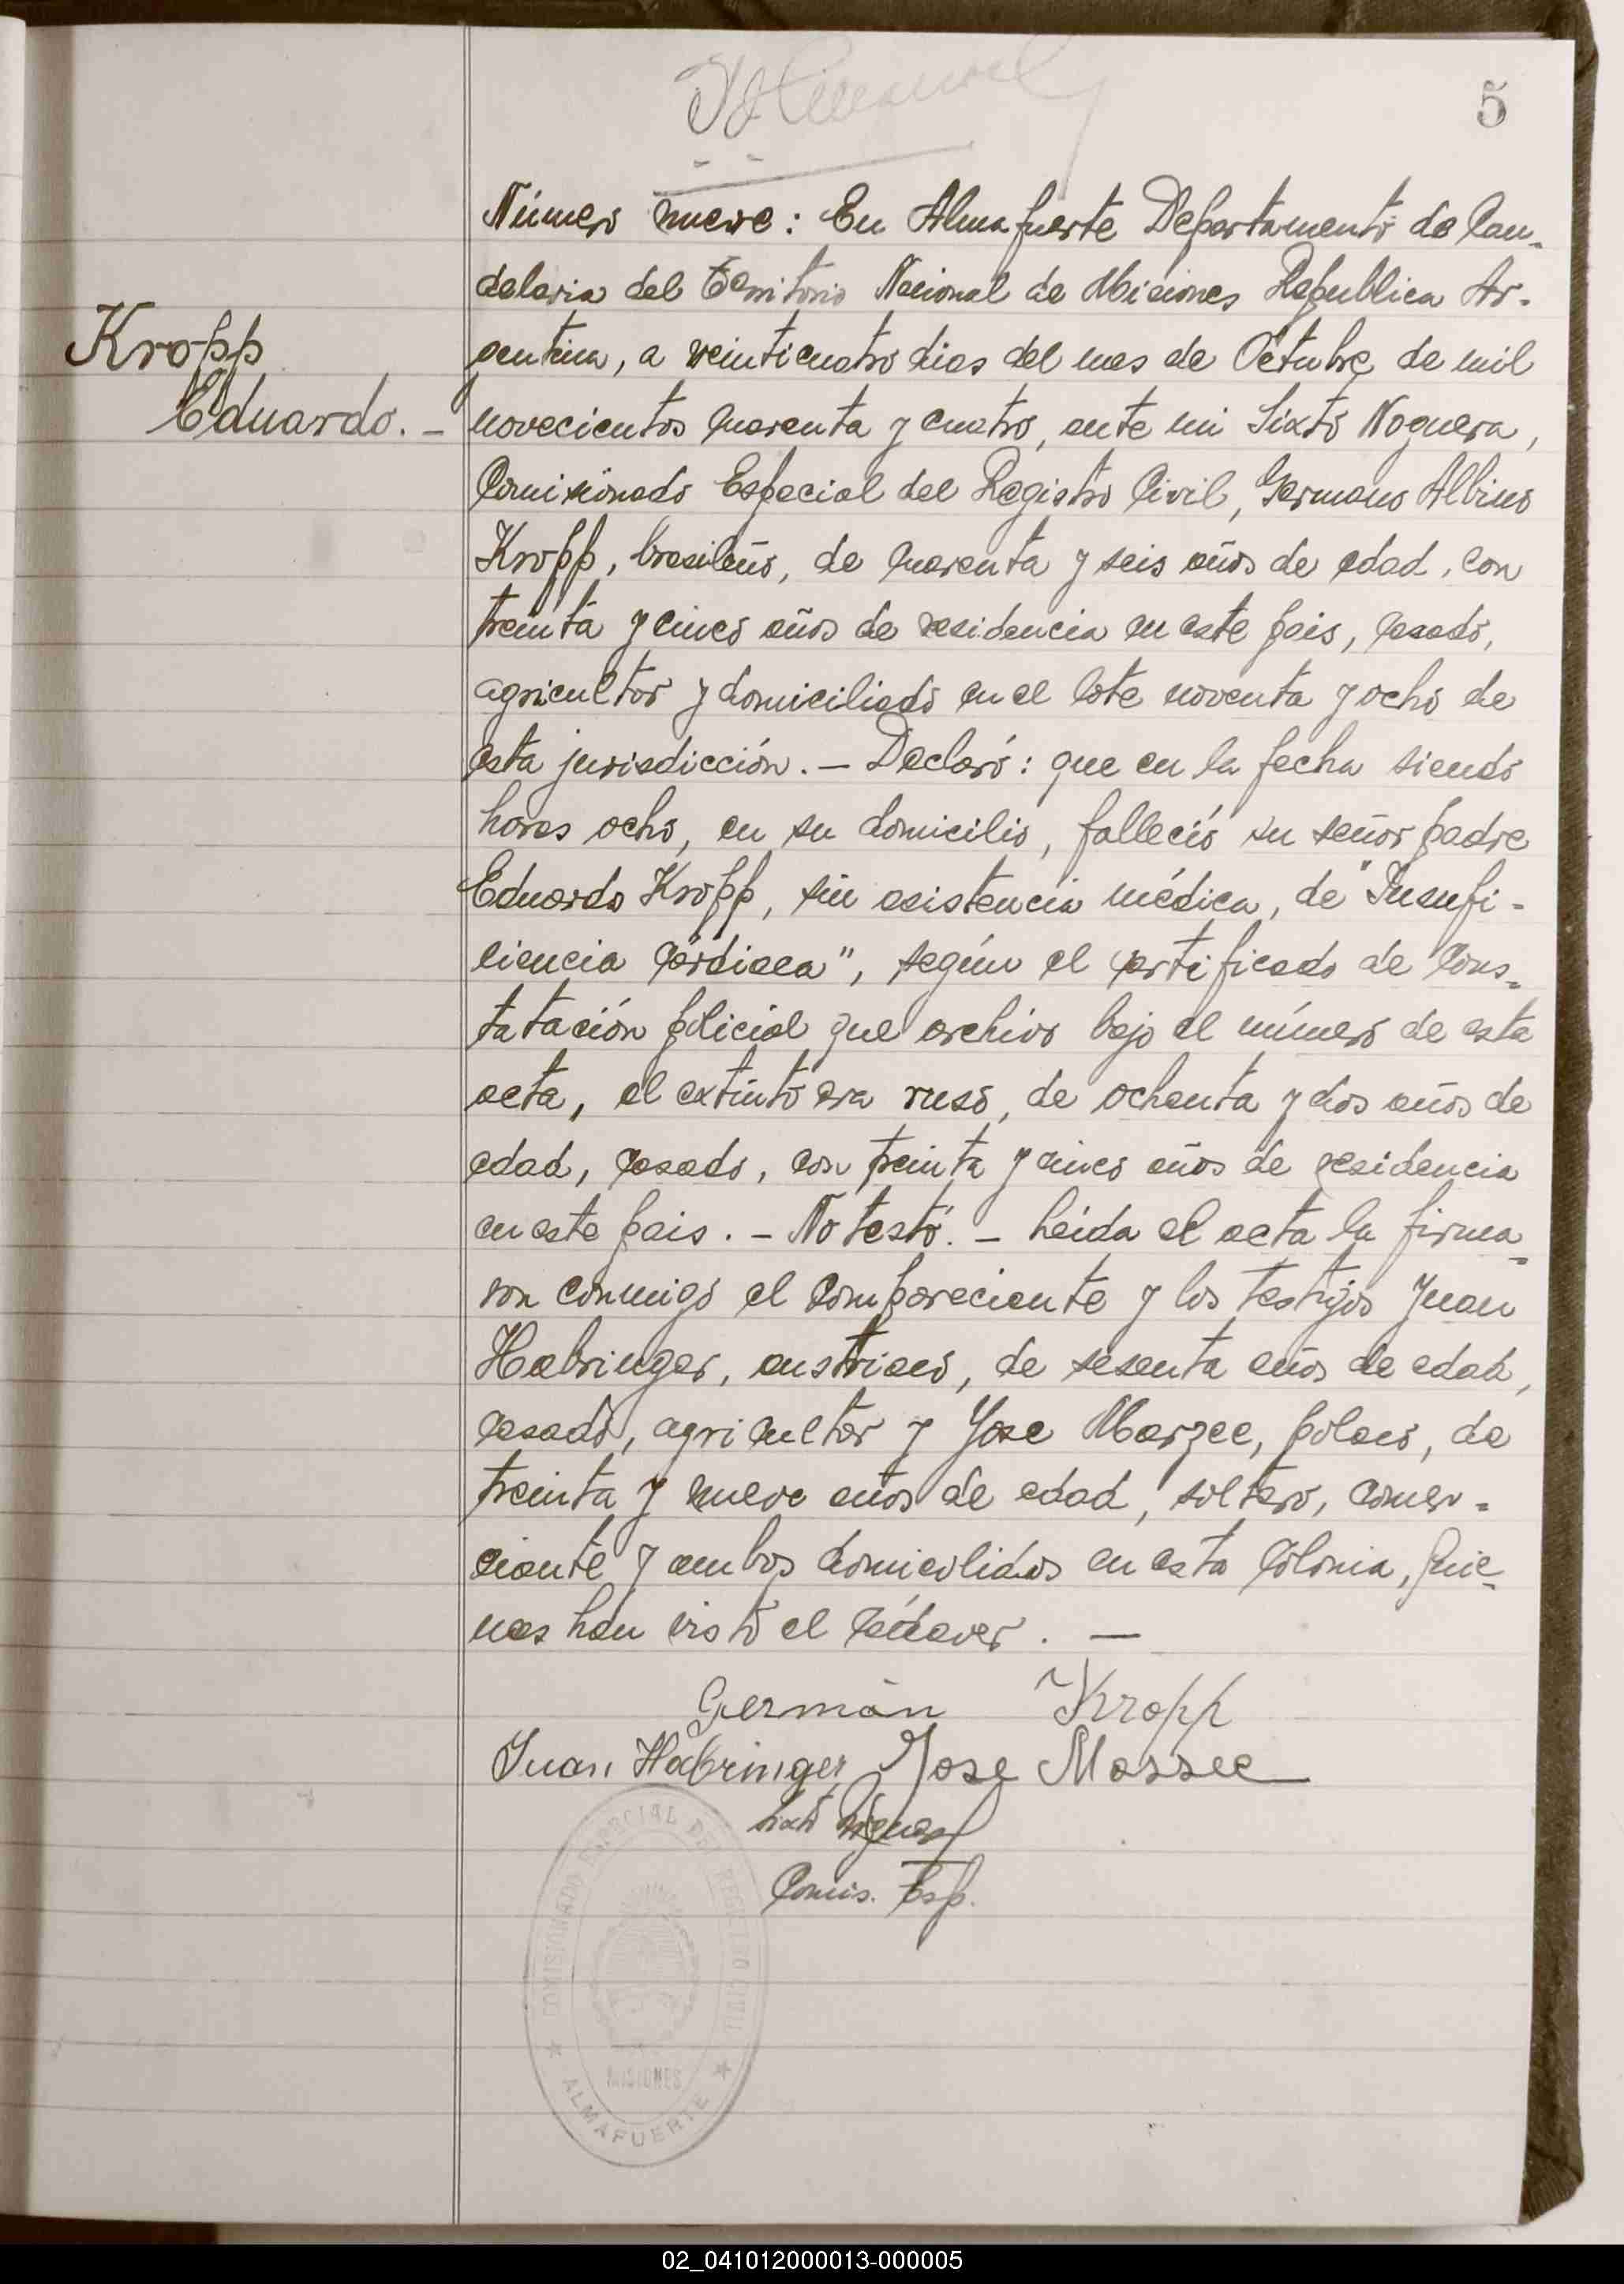 5
Número nueve: En Almafuerte Departamento de Can-
delaria del Territorio Nacional de Misiones Republica Ar-
gentina, a veinticuatro dias del mes de Octubre de mil
Kropp
Eduardo. -
novecientos cuarenta y cuatro, ante mi Sixto Noguera,
Comisionado Especial del Registro Civil, Germano Albino
Kropp, brasileño, de cuarenta y seis años de edad, con
treinta y cinco años de residencia en este pais, casado,
agricultor y domiciliado en el lote noventa y ocho de
esta jurisdicción. - Declaró: que en la fecha siendo
horas ocho, en su domicilio, falleció su señor padre
Eduardo Kropp, sin asistencia médica, de "Insufi-
ciencia cárdiaca", según el certificado de Cons-
tatación policial que archivo bajo el número de esta
acta, el extinto era ruso, de ochenta y dos años de
edad, casado, con treinta y cinco años de residencia
en este pais. - No testó. - Leida el acta la firma-
ron conmigo el compareciente y los testigos Juan
Habringer, austriaco, de sesenta años de edad,
casado, agricultor y Jose Marzec, polaco, de
treinta y nueve años de edad, soltero, comer-
ciante y ambos domicilidos en esta Colonia, quie-
nes han visto el cádaver. -
Germán Kropp
Juan Habringer Jose Massec
Sixto Noguera
Comis. Esp.
COMISIONADO ESPECIAL DEL REGISTRO CIVIL
MISIONES
ALMAFUERTE
02_041012000013-000005